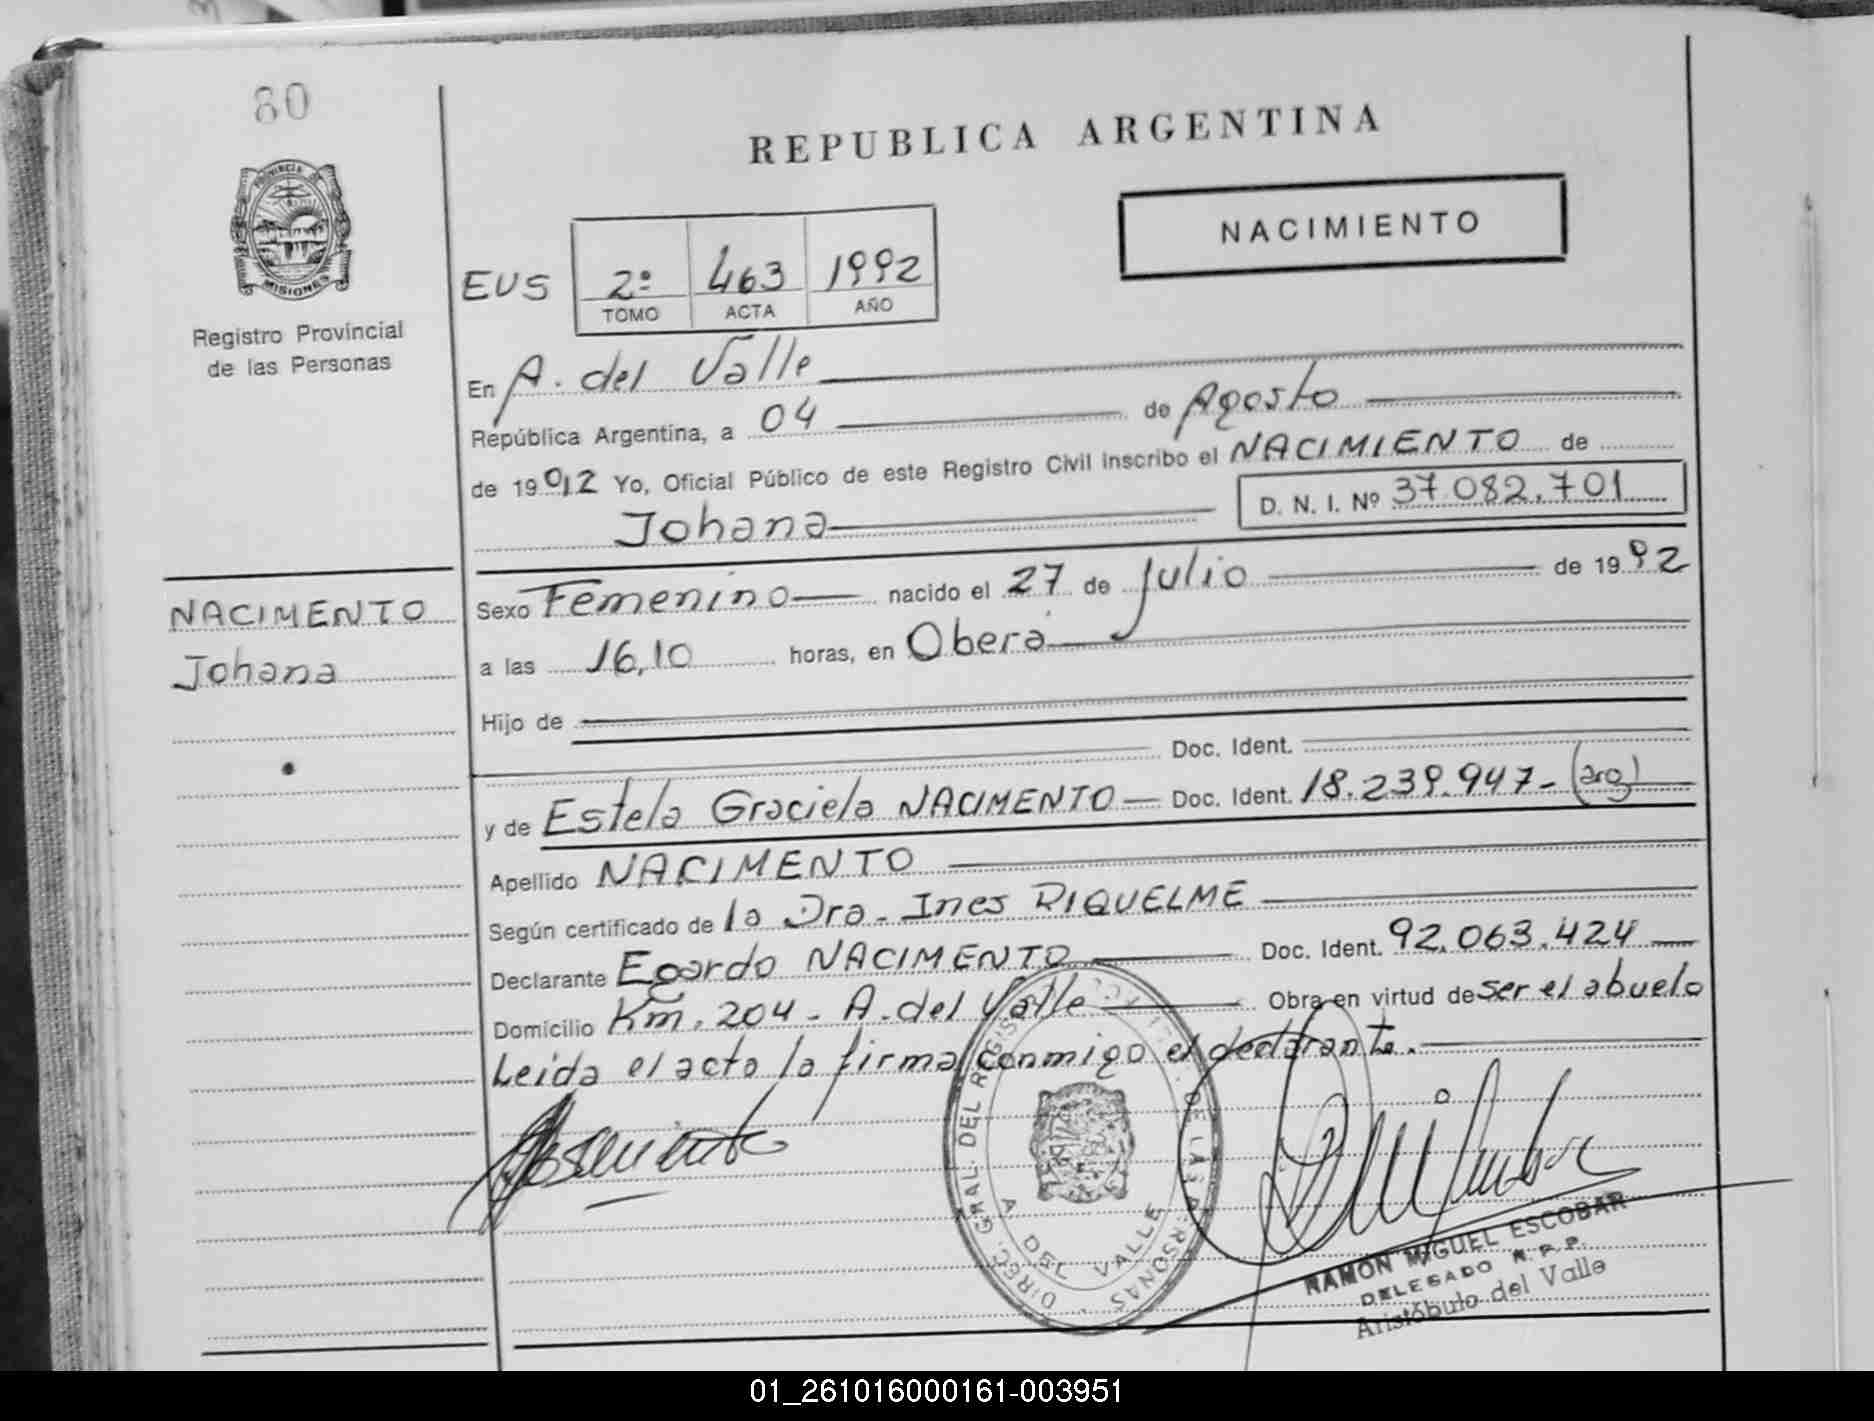 80
REPUBLICA ARGENTINA
NACIMIENTO
PROVINCIA DE
MISIONES
Registro Provincial
de las Personas
EUS 2º 463 1992
TOMO ACTA AÑO
En A. del Valle
República Argentina, a 04 de Agosto
de 1992 Yo, Oficial Público de este Registro Civil inscribo el NACIMIENTO de
Johana D. N. I. Nº 37.082.701
NACIMENTO
Johana
Sexo Femenino nacido el 27 de Julio de 1992
a las 16,10 horas, en Oberá
Hijo de
Doc. Ident.
y de Estela Graciela NACIMENTO Doc. Ident. 18.239.947- (arg)
Apellido NACIMENTO
Según certificado de la Dra. Ines RIQUELME
Declarante Egardo NACIMENTO Doc. Ident. 92.063.424
Domicilio Km. 204 - A. del Valle Obra en virtud de ser el abuelo
Leida el acta la firma conmigo el declarante.
DIREC. GRAL. DEL REGISTRO DE LAS PERSONAS
A. DEL VALLE
RAMON MIGUEL ESCOBAR
DELEGADO R.P.P.
Aristóbulo del Valle
01_261016000161-003951